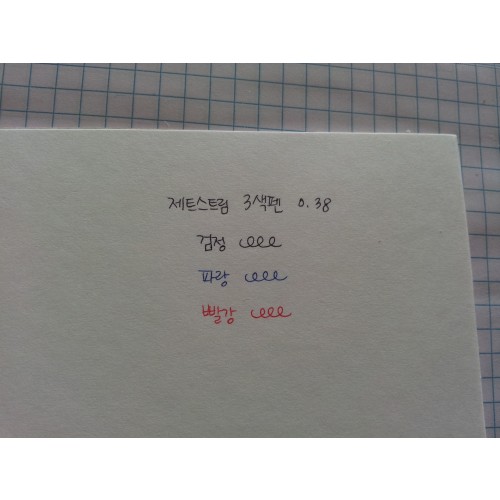 제트스트림 3색펜 0.38
검정
파랑
빨강